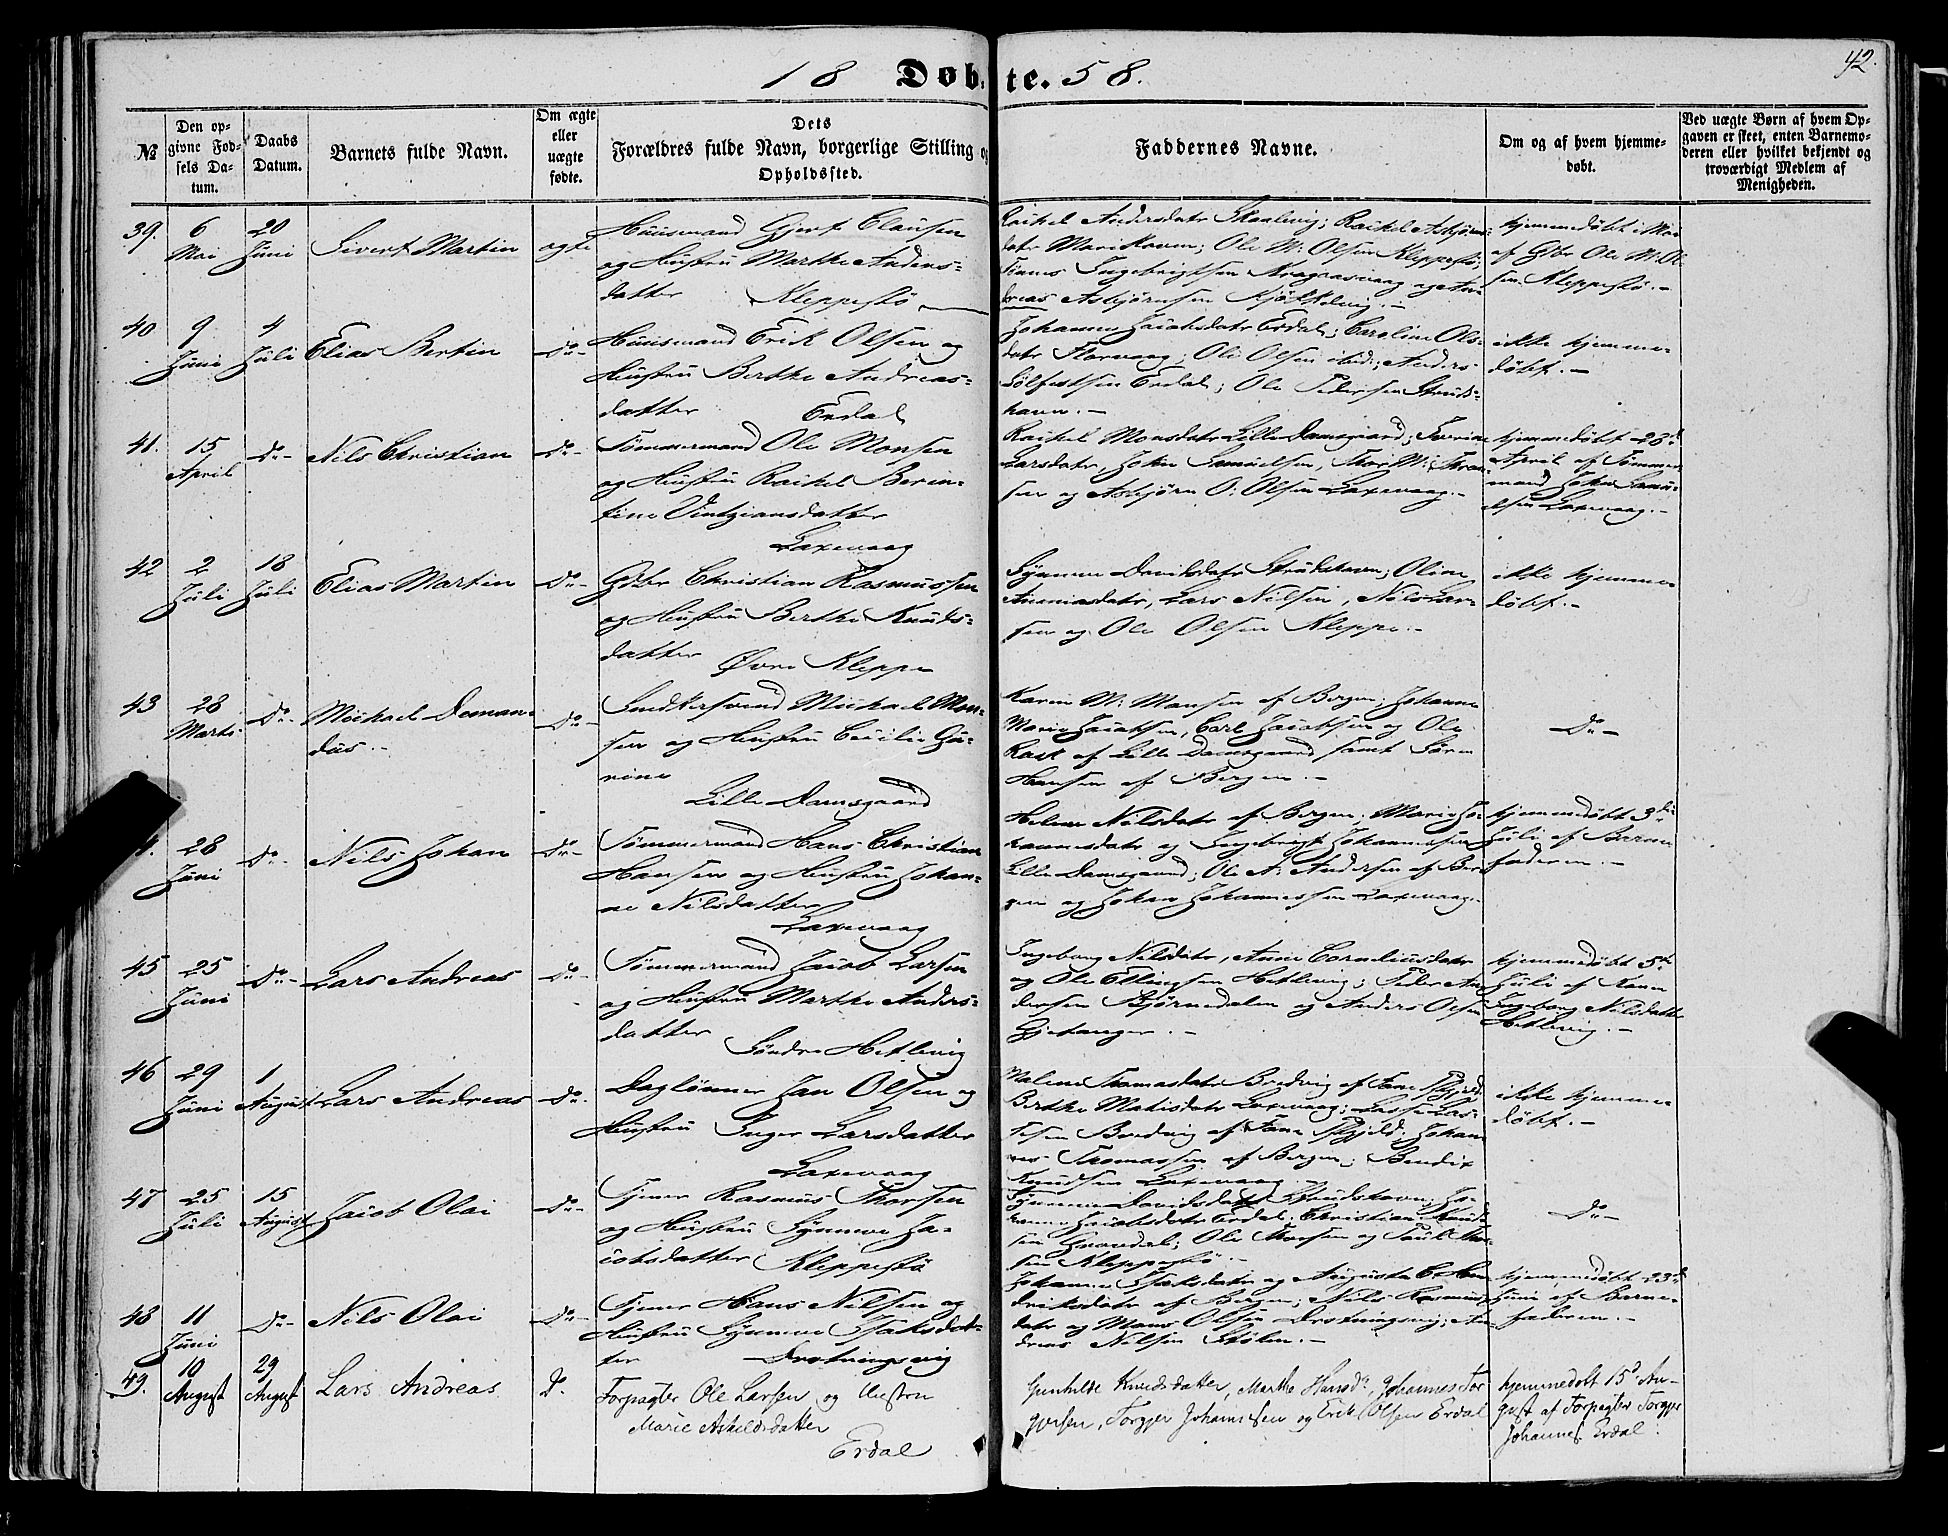 42.
18 Døbte. 58.
№
Den opgivne Fødsels Datum.
Daabs Datum.
Barnets fulde Navn.
Om ægte eller uægte fødte.
Dets Forældres fulde Navn, borgerlige Stilling og Opholdssted.
Faddernes Navne.
Om og af hvem hjemmedøbt.
Ved uægte Børn af hvem Opgaven er skeet, enten Barnemoderen eller hvilket bekjendt og troværdigt Medlem af Menigheden.
39.
6 Mai
20 Juni
Sivert Martin
ægte
Huusmand Gjert Clausen
og Hustru Marthe Anders-
datter Kleppestø
Rachel Andersdatr Skaalevig; Rachel Asbjørns-
datr Marikoven; Ole M: Olsen Kleppestø;
Ingebrigtsen
Asbjørnsen
hjemmedøbt i Mai
af Gbr Ole M: Ol-
sen Kleppestø.-
40
9 Juni
4 Juli
Elias Bertin
Do-
Huusmand Erik Olsen og
Hustru Berthe Andreas-
datter Erdal
Johanne Jacobsdatr Erdal; Caroline Ols-
datr Florvaag; Ole Olsen ibid; Anders
Sølfestsen Erdal; Ole Pedersen Struds-
havn.-
ikke hjemme-
døbt.-
41.
15 April
Do-
Nils Christian
Do-
Tømmermand Ole Monsen
og Hustru Rachel Berin-
tine
Laxevaag
Rachel Monsdatr Lille Damsgaard;
Larsdatr, John Samuelsen,
sen og Asbjørn O: Olsen Laxevaag.-
hjemmedøbt 28d
April af Tømmer-
mand John Samu-
elsen Laxevaag.-
42
2 Juli
18 Juli
Elias Martin
Do-
Gbr Christian Rasmussen
og Hustru Berthe Knuds-
datter Øvre Kleppe
Synneve Davidsdatr Strudshavn; Oline
Ananiasdatr, Lars Nilsen, Nils Lar-
sen og Ole Olsen Kleppe.-
ikke hjemme-
døbt.-
43
28 Marts
Do-
Michael Deman-
dus.-
Do-
Snedkersvend Michael Mon-
sen og Hustru Cecilie Gu-
rine
Lille Damsgaard
Karen M: Monsen af Bergen; Johanne
Marie Jacobsen, Carl Jacobsen og Ole
Rask af Lille Damsgaard samt Søren
Hansen af Bergen.-
Do-
28 Juni
Do-
Nils Johan
Do-
Tømmermand Hans Christian
Hansen og Hustru Johan-
ne Nilsdatter
Laxevaag
Helene Nilsdatr af Bergen; Marie Jo-
hannesdatr og Ingebrigt Johannessen
Lille Damsgaard; Ole A: Andersen af Ber-
gen og Johan Johannessen Laxevaag.
hjemmedøbt 3die
Juli af Barne-
faderen.-
45
25 Juni
Do-
Lars Andreas
Do-
Tømmermand Jacob Larsen
og Hustru Marthe Anders-
datter Søndre Hetlevig
Ingeborg Nilsdatr, Anne Corneliusdatr
og Ole Ellingsen Hetlevig; Peder An-
dersen Bjørnedalen og Anders Olsen
Gjetanger.-
hjemmedøbt 5te
Juli af Kone
Ingeborg Nilsdatter
Hetlevig.-
46
29 Juni
1 August
Lars Andreas
Do-
Daglønner Jan Olsen og
Hustru Inger Larsdatter
Laxevaag
Malene Thomasdatr Bredvig af Fane Pgjeld;
Berthe Mathisdatr Laxevaag; Lasse Las-
sesen Bredvig af Fane Pgjeld; Johan-
nes Thomassen af Bergen; Bendix
Knudsen Laxevaag.
ikke hjemme-
døbt.-
47
25 Juli
15 August
Jacob Olai
Do-
Fjener Rasmus Thorsen
og Hustru Synneve Ja-
cobsdatter Kleppestø
Synneve Davidsdatr Strudshavn; Jo-
hanne Jacobsdatr Erdal; Christian Knud-
sen; Ole Thorsen og Poul Thor-
sen Kleppestø.-
Do-
48
11 Juni
Do-
Nils Olai
Do-
Hans Nilsen og
Hustru Synneve Isaksdat-
ter Drotningsvig
Johanne Isaksdatr og Augusta C. Hen-
driksdatr af Bergen; Nils Rasmus-
datr og Mons Olsen Drotningsvig; An-
dreas Nilsen Stølen.-
hjemmedøbt 23d
Juni af Barne-
faderen.-
49.
10 August
29 August
Lars Andreas
Do.
Forpagter Ole Larsen og Hustru
Marie Askildsdatter
Erdal
Gunhilde Knudsdatter, Marthe Hansdr, Johannes Tor-
gersen, Torgjer Johannesen og Erik Olsen Erdal
hjemmedøbt 15d Au-
gust af Forpagter Torgjer
Johannes. Erdal.